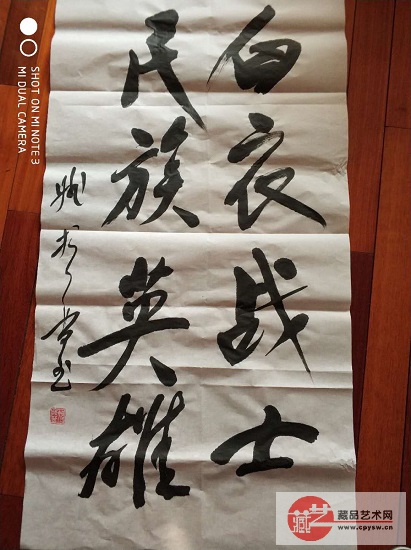 白衣战士
民族英雄
SHOT ON MI NOTE 3
MI DUAL CAMERA
藏艺
藏品艺术网
www.cpysw.cn